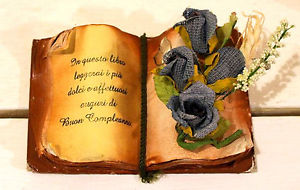 In questo libro
leggerai i più
dolci e affettuosi
auguri di
Buon Compleanno